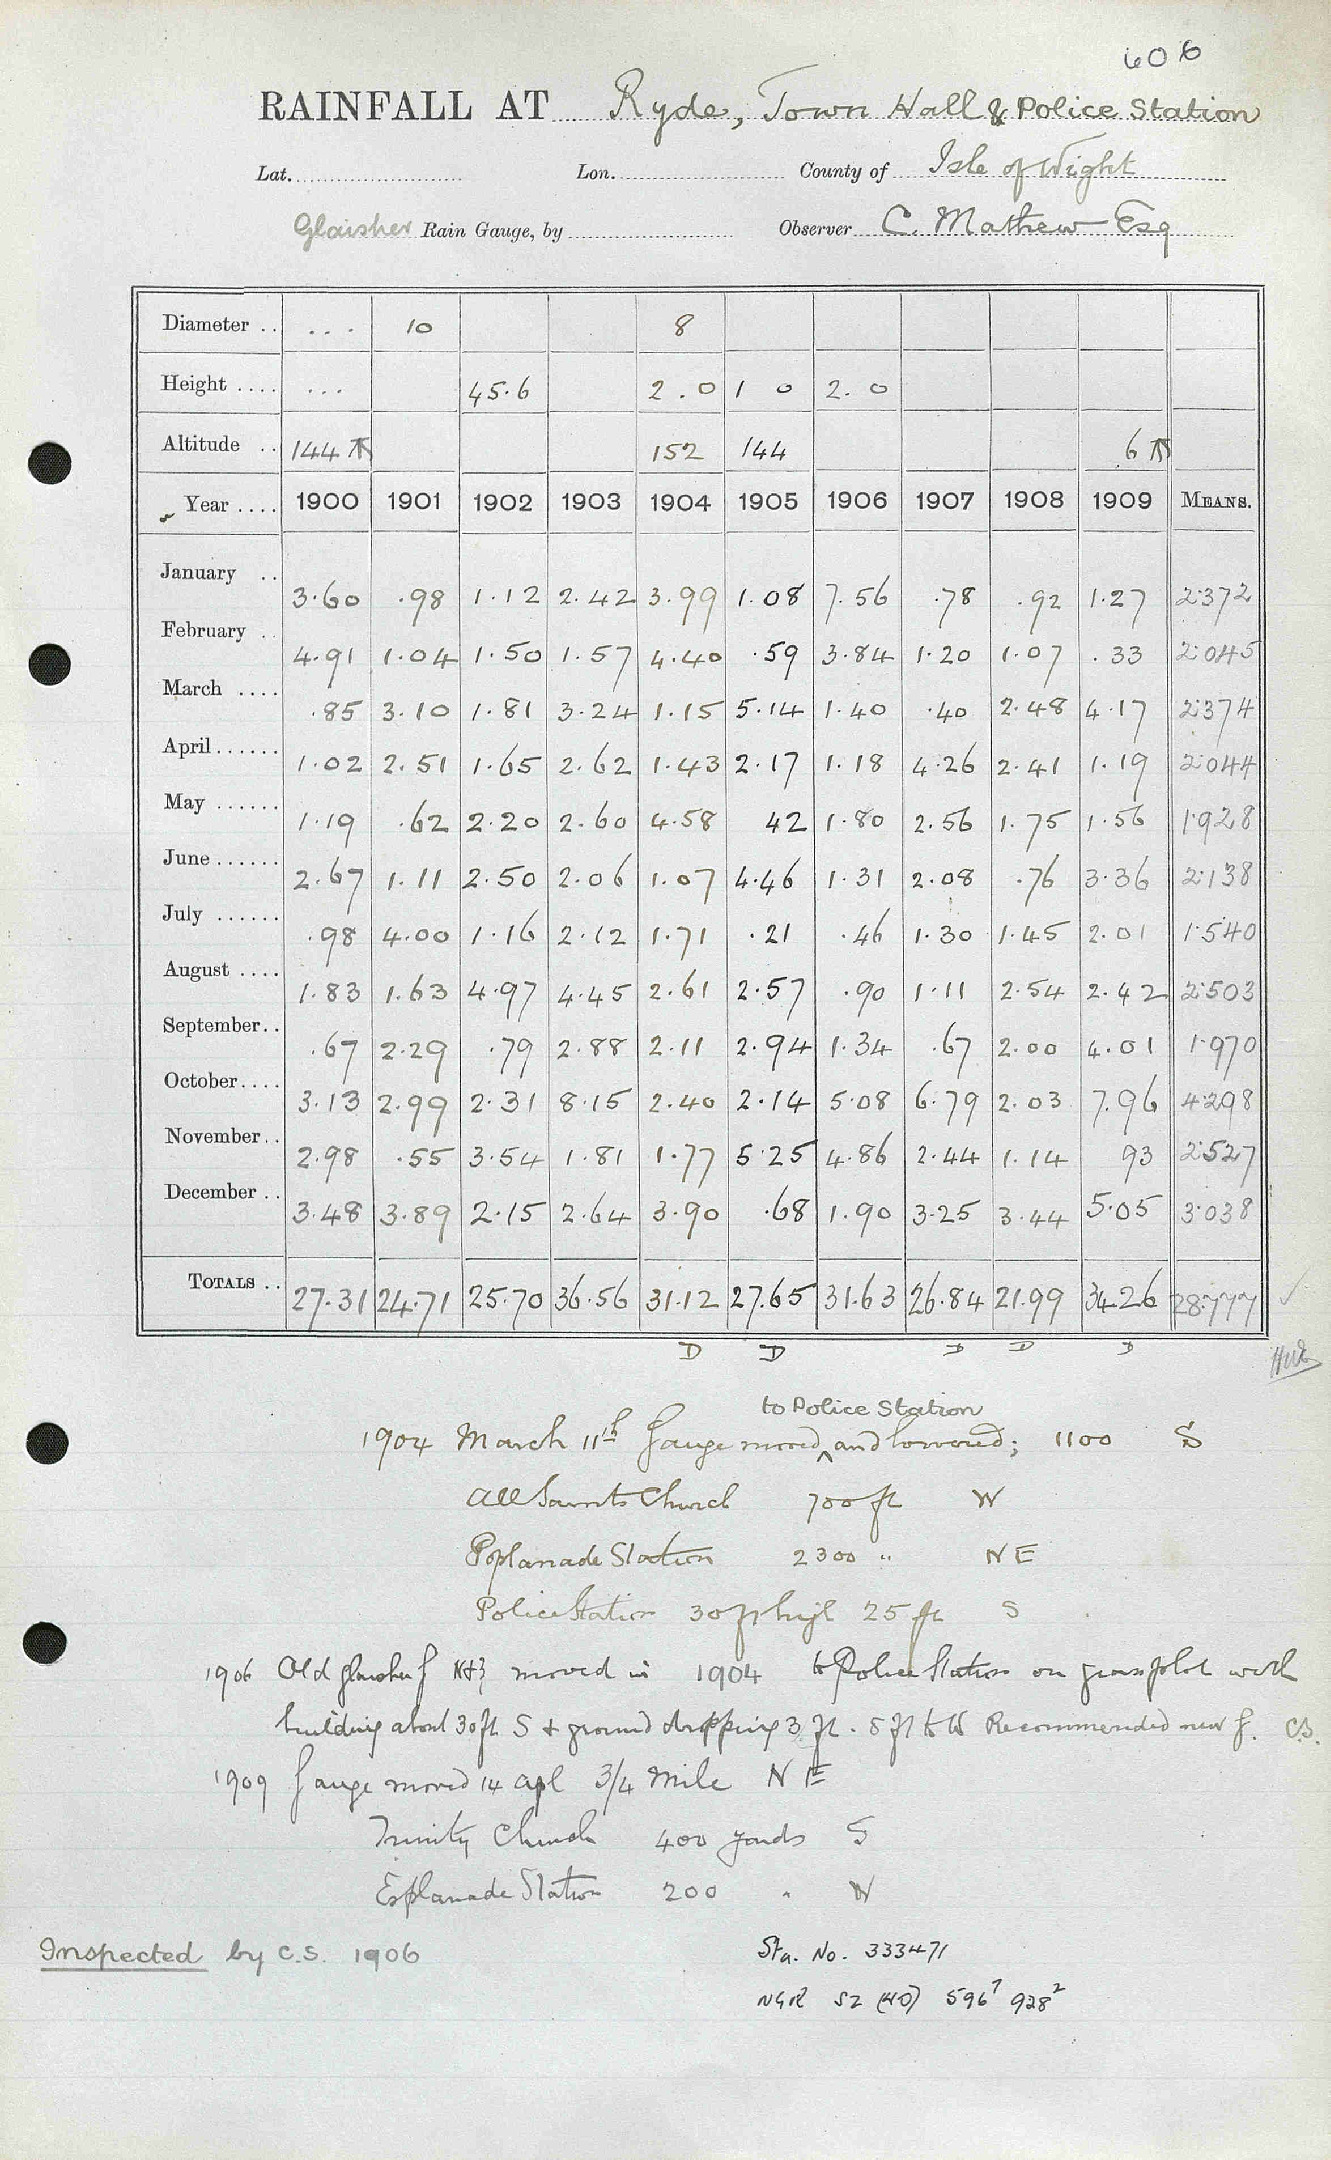 606
RAINFALL AT Ryde, Town Hall & Police Station
Lat. Lon. County of Isle of Wight
Glaisher Rain Gauge, by Observer C. Mathew Esq
Diameter .. ... 10 8
Height .... ... 45.6 2.0 1 0 2.0
Altitude .. 144 152 144 6
Year .... 1900 1901 1902 1903 1904 1905 1906 1907 1908 1909 MEANS.
January .. 3.60 .98 1.12 2.42 3.99 1.08 7.56 .78 .92 1.27 2.372
February .. 4.91 1.04 1.50 1.57 4.40 .59 3.84 1.20 1.07 .33 2.045
March .... .85 3.10 1.81 3.24 1.15 5.14 1.40 .40 2.48 4.17 2.374
April ...... 1.02 2.51 1.65 2.62 1.43 2.17 1.18 4.26 2.41 1.19 2.044
May ...... 1.19 .62 2.20 2.60 4.58 42 1.80 2.56 1.75 1.56 1.928
June ...... 2.67 1.11 2.50 2.06 1.07 4.46 1.31 2.08 .76 3.36 2.138
July ...... .98 4.00 1.16 2.12 1.71 .21 .46 1.30 1.45 2.01 1.540
August .... 1.83 1.63 4.97 4.45 2.61 2.57 .90 1.11 2.54 2.42 2.503
September.. .67 2.29 .79 2.88 2.11 2.94 1.34 .67 2.00 4.01 1.970
October.... 3.13 2.99 2.31 8.15 2.40 2.14 5.08 6.79 2.03 7.96 4.298
November.. 2.98 .55 3.54 1.81 1.77 5.25 4.86 2.44 1.14 93 2.527
December .. 3.48 3.89 2.15 2.64 3.90 .68 1.90 3.25 3.44 5.05 3.038
TOTALS .. 27.31 24.71 25.70 36.56 31.12 27.65 31.63 26.84 21.99 34.26 28.777
D D D D D
to Police Station
1904 March 11th Gauge moved and lowered; 1100 S
All Saints Church 700 ft W
Esplanade Station 2300 " NE
Police Station 30 ft high 25 ft S
1906 Old Glaisher g moved in 1904 to Police Station on grass plot with
building about 30 ft S & ground dropping 3 ft. 8 ft to W Recommended new g. C.S.
1909 Gauge moved 14 apl 3/4 mile NE
Trinity Church 400 yards S
Esplanade Station 200 " N
Inspected by C.S. 1906
Sta. No. 333471
NGR SZ (40) 596⁷ 928²